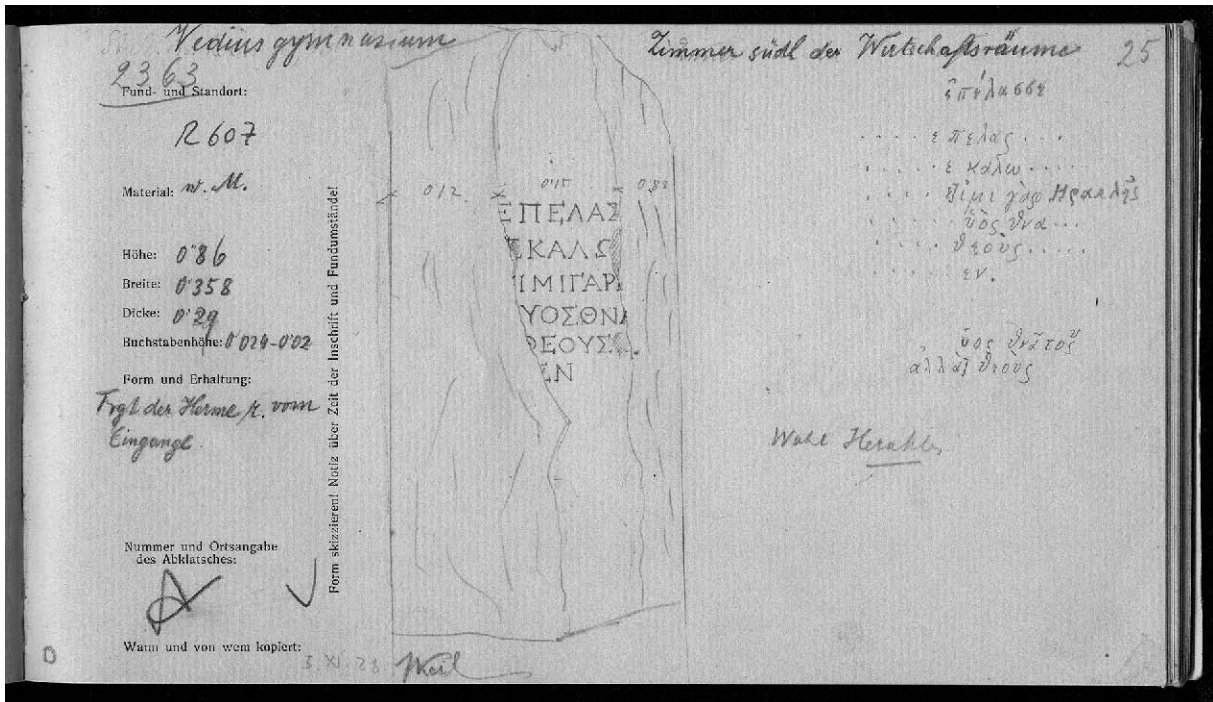 Vediusgymnasium
Zimmer südl der Wirtschaftsräume
25
2363
Fund- und Standort:
R 607
Material: w. M.
Höhe: 0'86
Breite: 0'358
Dicke: 0'29
Buchstabenhöhe: 0'024-0'02
Form und Erhaltung:
Frgt der Herme r. vom
Eingange.
Nummer und Ortsangabe
des Abklatsches:
Wann und von wem kopiert:
3. XI. 28 JKeil
Form skizzieren! Notiz über Zeit der Inschrift und Fundumstände!
0'12 0'15 0'82
ΕΠΕΛΑΣ
ΕΚΑΛΩ
ΙΜΙΓΑΡ
ΥΟΣΘΝΑ
ΘΕΟΥΣ
ΕΝ
ἐπέλασσε
. . . . ε πελας . . .
. . . . ε καλω . . . .
. . . . εἰμι γὰρ Ηρακλῆς
. . . . ὑὸς θνα . . .
. . . . θεοὺς . . . . .
. . . . εν.
θεοὺς
Wohl Herakles
D